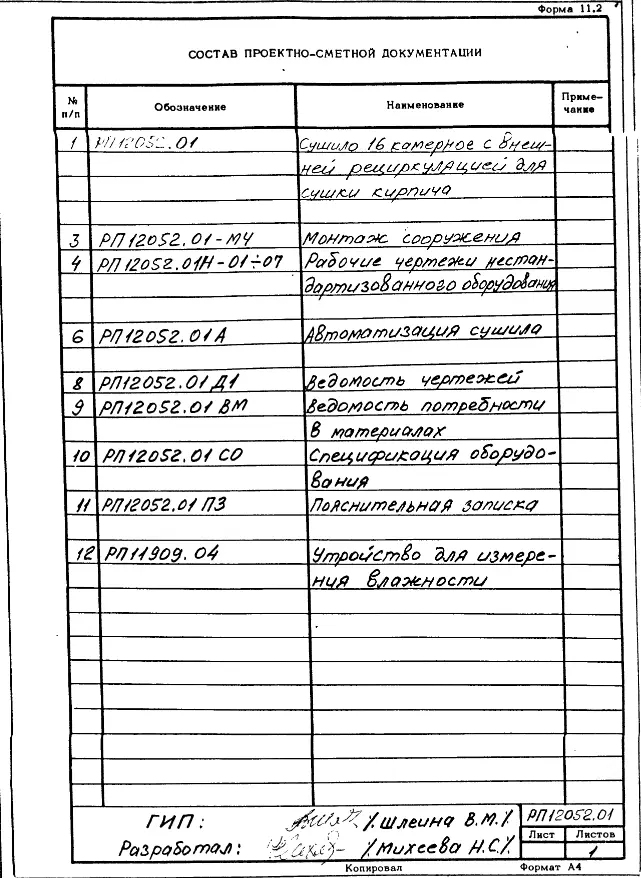 Форма 11.2
СОСТАВ ПРОЕКТНО-СМЕТНОЙ ДОКУМЕНТАЦИИ
№ п/п Обозначение Наименование Приме-чание
1 РП12052.01 Сушило 16 камерное с внеш-
ней рециркуляцией для
сушки кирпича
3 РП12052.01-МЧ Монтаж сооружения
4 РП12052.01Н-01÷07 Рабочие чертежи нестан-
дартизованного оборудования
6 РП12052.01А Автоматизация сушила
8 РП12052.01Д1 Ведомость чертежей
9 РП12052.01 ВМ Ведомость потребности
в материалах
10 РП12052.01 СО Спецификация оборудо-
вания
11 РП12052.01 ПЗ Пояснительная записка
12 РП11909.04 Утройство для измере-
ния влажности
ГИП: /Шлеина В.М./ РП12052.01
Лист Листов
Разработал: /Михеева Н.С/. 1
Копировал Формат А4